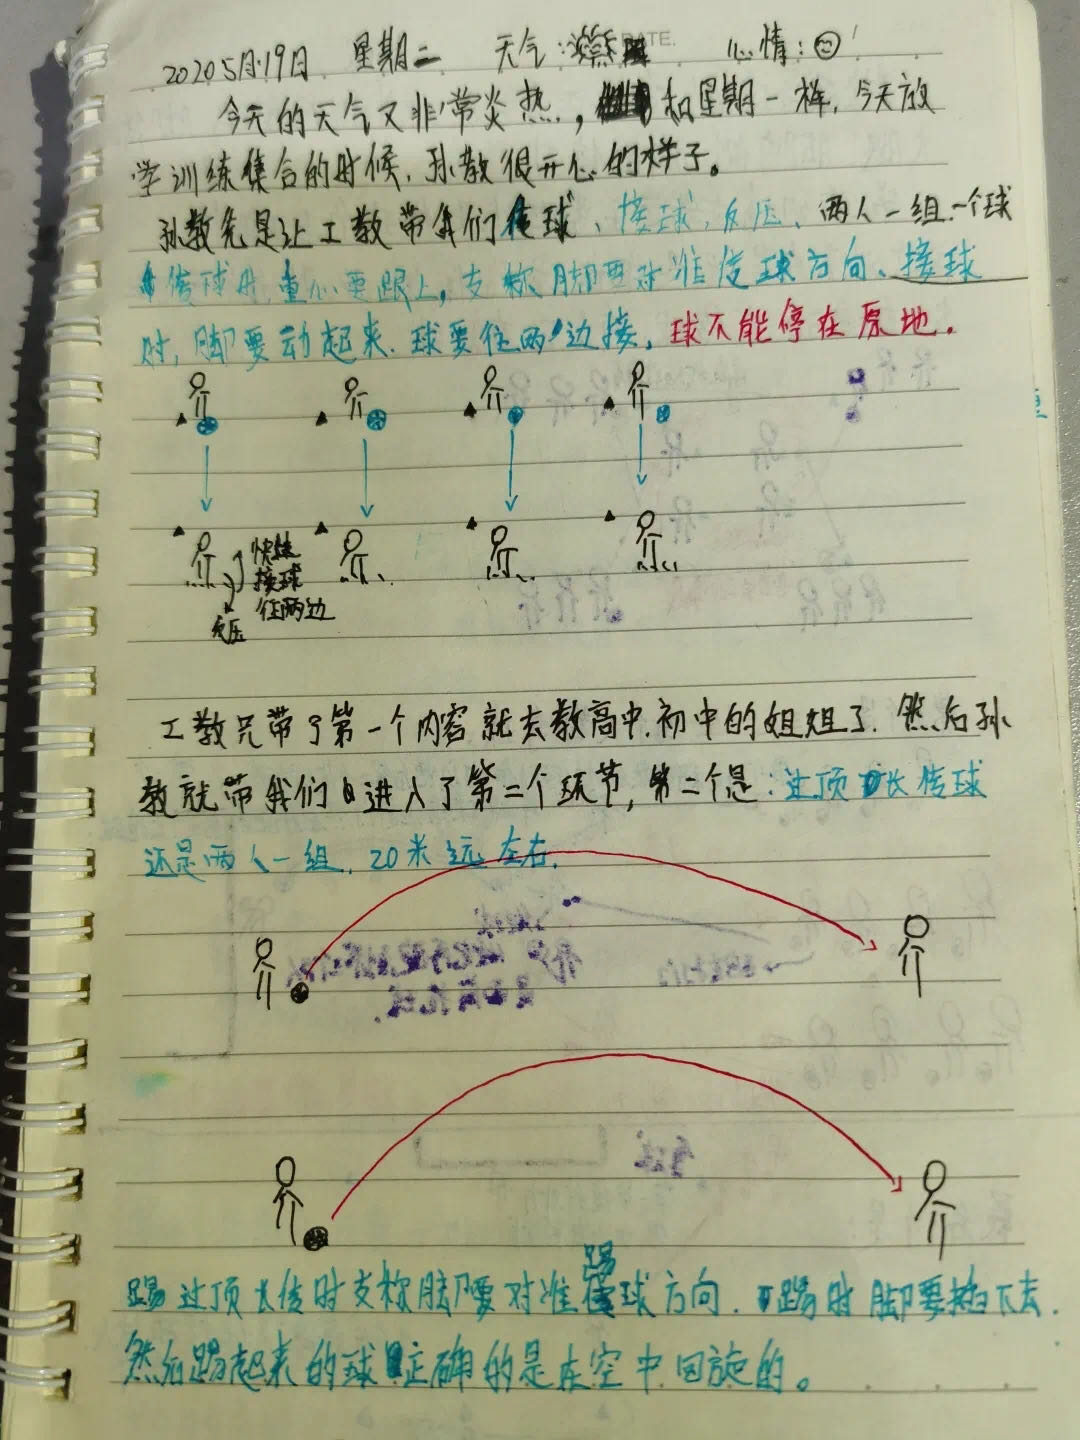 2020 5月19日 星期二 天气: DATE. 心情:
今天的天气又非常炎热, 和星期一样, 今天放
学训练集合的时候, 孙教很开心的样子。
孙教先是让工教带我们传球、接球、反压、两人一组一个球
传球时, 重心要跟上, 支称脚要对准传球方向、接球
时, 脚要动起来. 球要往两边接, 球不能停在原地。
快练
接球
往两边
反压
工教只带了第一个内容就去教高中.初中的姐姐了. 然后孙
教就带我们进入了第二个环节, 第二个是: 过顶长传球
还是两人一组, 20米远左右.
踢
踢过顶长传时支称脚要对准球方向. 踢时脚要挡下去.
然后踢起来的球正确的是在空中回旋的。